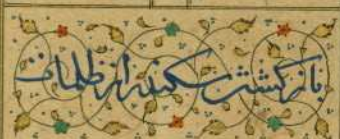 بازگشتن سکندر از ظلمات